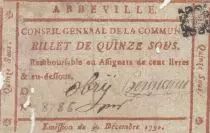 ABBEVILLE.
CONSEIL GENERAL DE LA COMMUNE
BILLET DE QUINZE SOUS.
Remboursable en Assignats de cent livres &
au-dessous.
8786
Emission du 30 Décembre 1791.
Quinze Sous.
Quinze Sous.